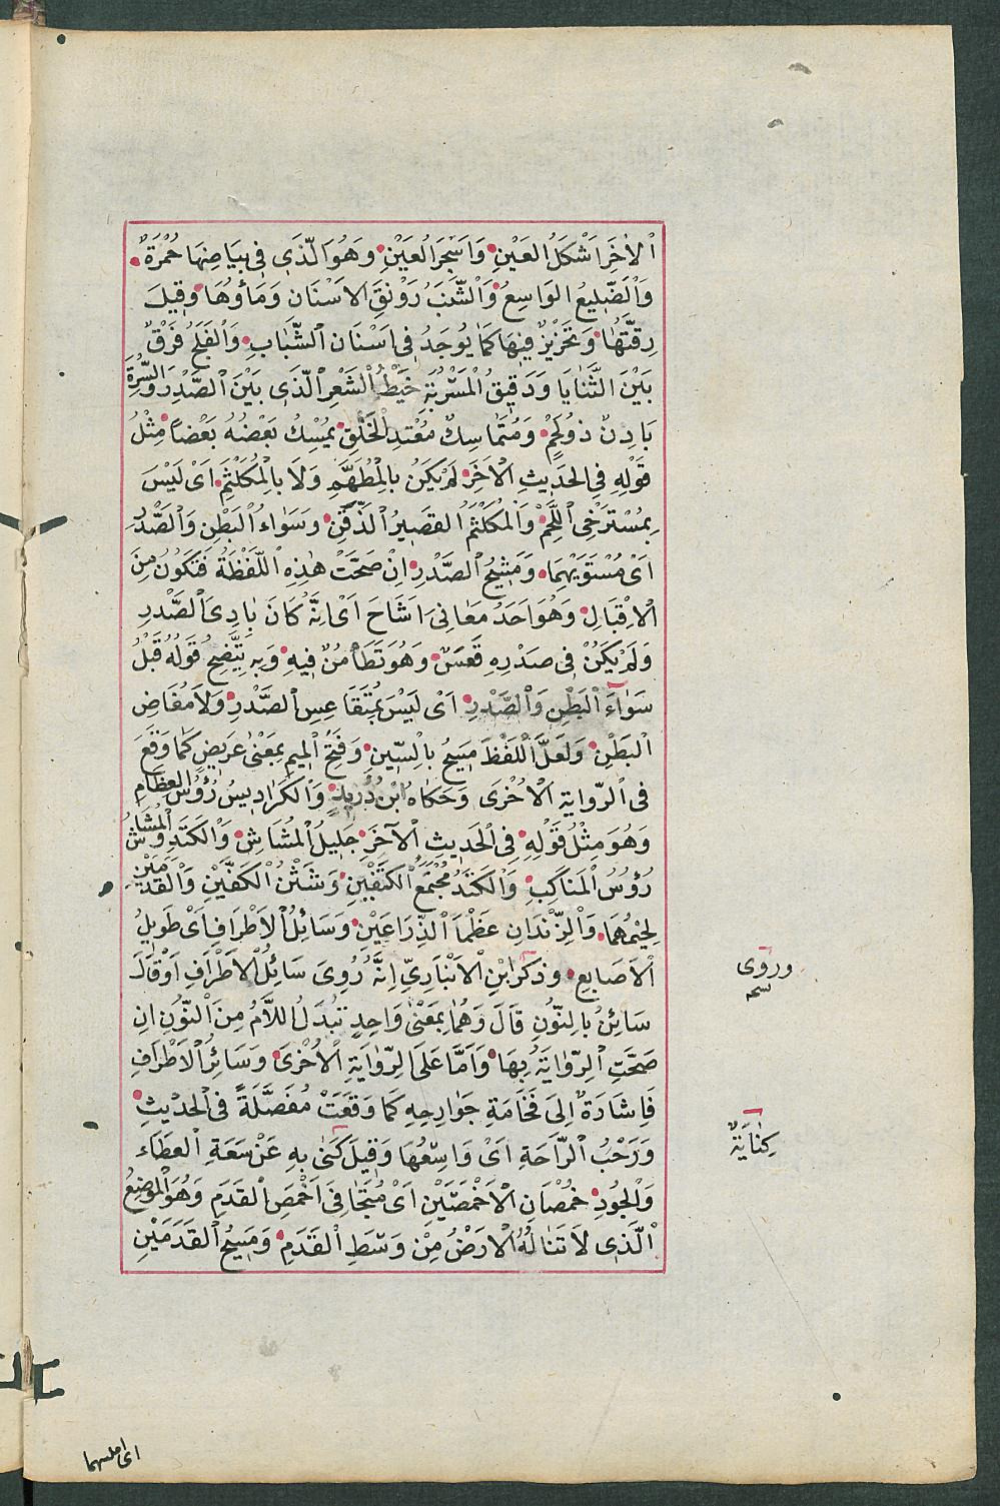 اْلاٰخَرِ اَشْكَلُ العَيْنِ وَاَسْجَرُ العَيْنِ وَهُوَ الَّذَى فِى بيَاضِهَا حُمْرَةٌ
وَالْضَّلِيعُ الوَاسِعُ وَالشَّنَبُ رَوْنَقَ الاَسْنَانِ وَمَاؤُهَا وَقِيلَ
رِقَّتُهَا وَتَحْزِيزٌ فِيهَا كَمَا يُوجَدُ فِى اَسْنَانِ الشَّبَابِ وَالْفَلَجُ فَرْقٌ
بَيْنَ الثَّنَايَا وَدَقِيقُ الْمَسْرُبَةِ خَيْطُ الشَّعْرِ الَّذَى بَيْنَ الصَّدْرِ وَالسُّرَّةِ
بَادِنٌ ذوُلَحْمٍ وَمُتَمَاسِكٌ مُعْتَدِلُ الْخَلْقِ يُمْسِكُ بَعْضُهُ بَعْضاً مِثْلُ
قَوْلِهِ فِى الحَدَيِثِ الاٰخَرِ لَمْ يَكَنُ بالِمُطَهَّمِ وَلَا باِلْمُكَلْثَمِ اَىْ لَيْسَ
بِمُسْتَرْخِى اللَّحْمِ وَالْمُكَلْثَمُ القَصِيرُ الذَّقَنِ وَسَوَاءُ البَطْنِ وَالصَّدْرِ
اَىْ مُسْتَوَيْهِمَا وَمَشِيحُ الصَّدْرِ اِنْ صَحَّتْ هٰذِهِ اللَّفْظَةُ فَتَكُونُ مِنَ
الْاِقْبَالِ وَهُوَ اَحَدُ مَعَانِى اَشَاحَ اَىْ اِنَّهُ كَانَ بَادِىَ الصَّدْرِ
وَلَمْ يَكُنْ فِى صَدْرِهِ قَعَسٌ وَهُوَ تَطَاْمُنٌ فِيهِ وَبِهِ يَتَّضِحُ قَوْلُهُ قَبْلُ
سَوَاءَ البَطْنِ وَالصَّدْرِ اَىْ لَيْسَ بِمُتَقَاعِسِ الصَّدْرِ وَلَا مُفَاضِ
البَطْنِ وَلَعَلَّ اللَّفْظَ مَسِيحُ بالِسّينِ وَفَتْحُ الْمِيمِ بِمَعْنٰى عَرِيضٍ كَمَا وَقَعَ
فِى الرّوَايةِ الاُخْرَى وَحَكاهُ ابْنُ دُرَيْدٍ وَالْكَرَادِيسُ رُؤُسُ العِظَامِ
وَهُوَ مِثْلُ قَوْلِهِ فِى الْحَدِيثِ الْآخَرِ جَلِيلُ الْمُشَاشِ وَالْكَتَدِ وَالْمُشَاشُ
رُؤُسُ الْمَنَاكِبِ وَالْكَتَدُ مُجْتَمَعُ الكَتِفَيْنِ وَشَثْنُ الْكَفَّيْنِ وَالْقَدَمَيْنِ
لَحِيْمُهُمَا وَالْزِّنْدَانِ عَظْمَا الذِّرَاعَيْنِ وَسَائِلُ الاَطْرَافِ اَىْ طَوِيلُ
الْاَصَابِعِ وَذَكَرَ ابْنُ الاَنْبَارِىِّ اِنَّهُ رُوِىَ سَائِلُ الاَطْرَافِ اَوْ قَالَ
سَائِنُ بالِنُّونِ قَالَ وَهُمَا بِمَعْنًى وَاحِدٍ تُبْدَلُ اللاَّمُ مِنَ الْنُّونِ اِنْ
صَحَّتِ الرِّوَايَةُ بِهَا وَاَمَّا عَلَى الرِّوَايَةِ الاُخْرَى وَسَائِرُ الاَطْرَافِ
فَاِشَارَةٌ اِلَى فَخَامَةِ جَوَارِحِهِ كَمَا وَقَعَتْ مُفَصَّلَةً فِى الْحَدِيْثِ
وَرَحْبُ الْرَّاحَةِ اَىْ وَاسِعُهَا وَقِيلَ كَنٰى بِهِ عَنْ سَعَةِ الْعَطَاء
وَالْجُودِ خُمْصَانِ الاَخْمَصَيْنِ اَىْ مُتَجَافِى اَخْمَصِ القَدَمِ وَهُوَ الْمَوْضِعُ
الَّذِى لاَ تَنَالُهُ الاَرْضُ مِنْ وَسَطِ الْقَدَمِ وَمَسِيحُ القَدَمَيْنِ
وروى
نسخه
كِنَايَةٌ
اى املسهما